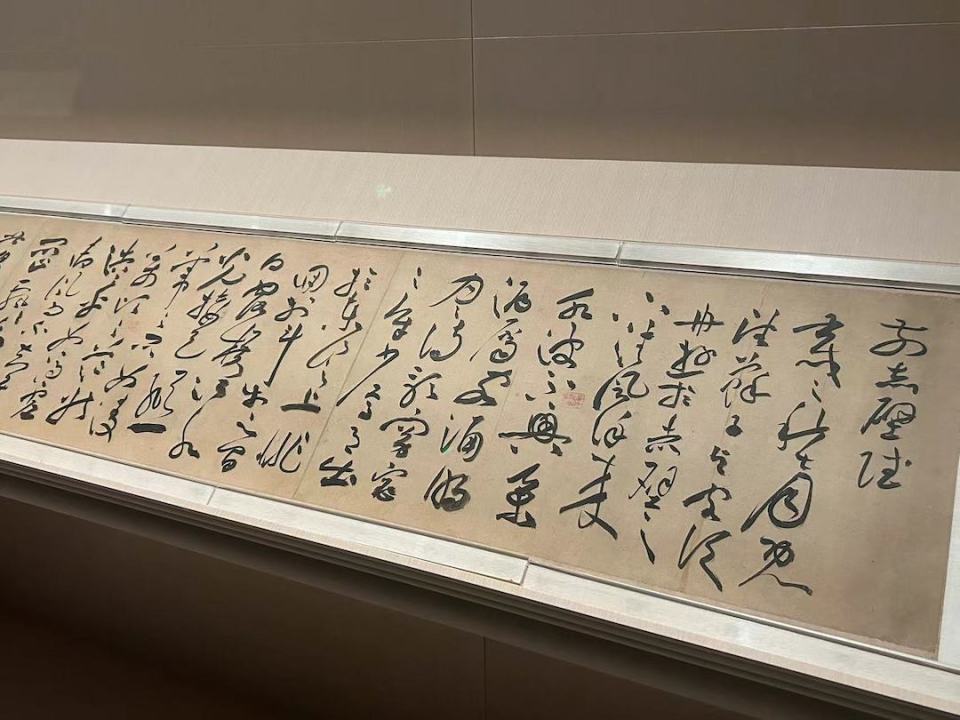 前赤壁賦
壬戌之秋七月既
望蘇子與客泛
舟遊於赤壁之
下清風徐來
水波不興舉
酒屬客誦明
月之詩歌窈窕
之章少焉月出
於東山之上徘
徊於斗牛之間
白露橫江水
光接天縱一
葦之所如凌
萬頃之茫然
浩浩乎如馮虛